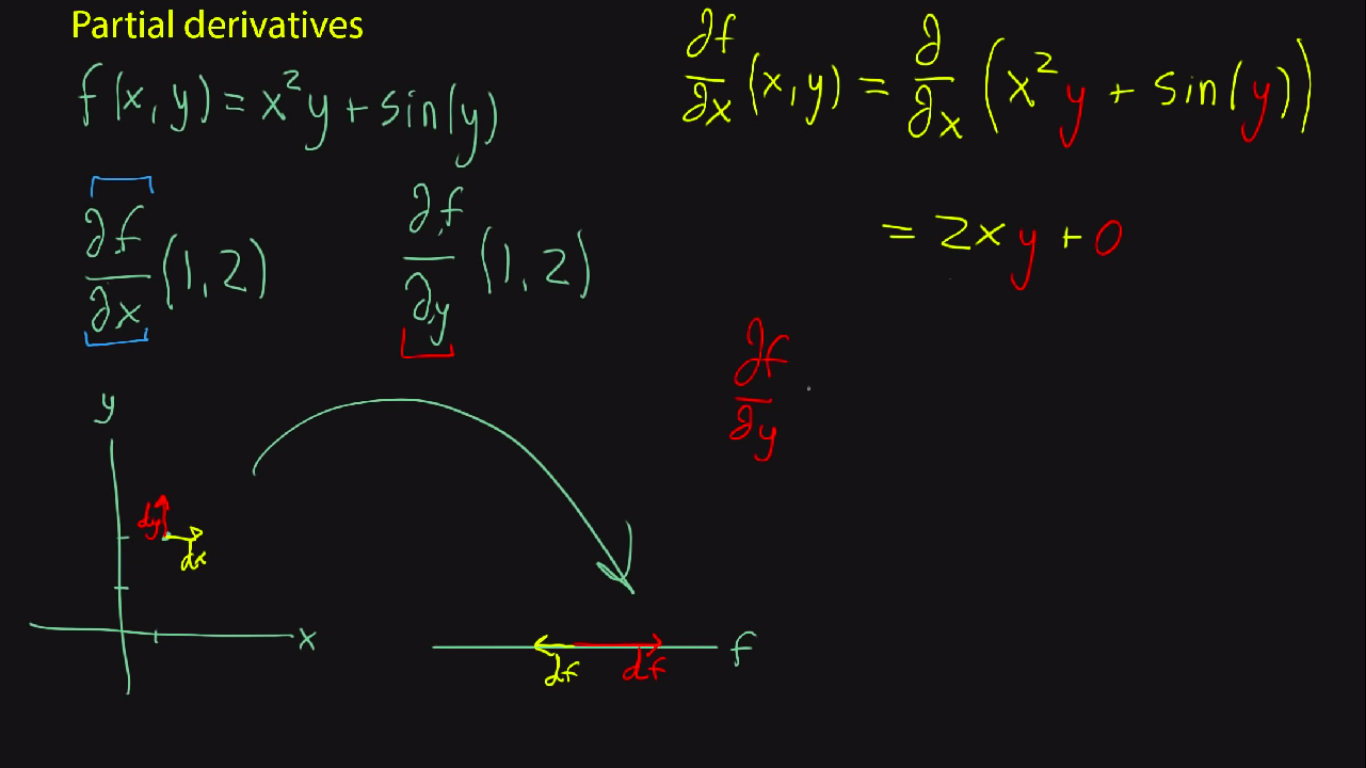 Partial derivatives
f(x, y) = x²y + sin(y)
∂f/∂x (1, 2)
∂f/∂y (1, 2)
y
dy
dx
x
df
df
f
∂f/∂x (x, y) = ∂/∂x (x²y + sin(y))
= 2xy + 0
∂f/∂y